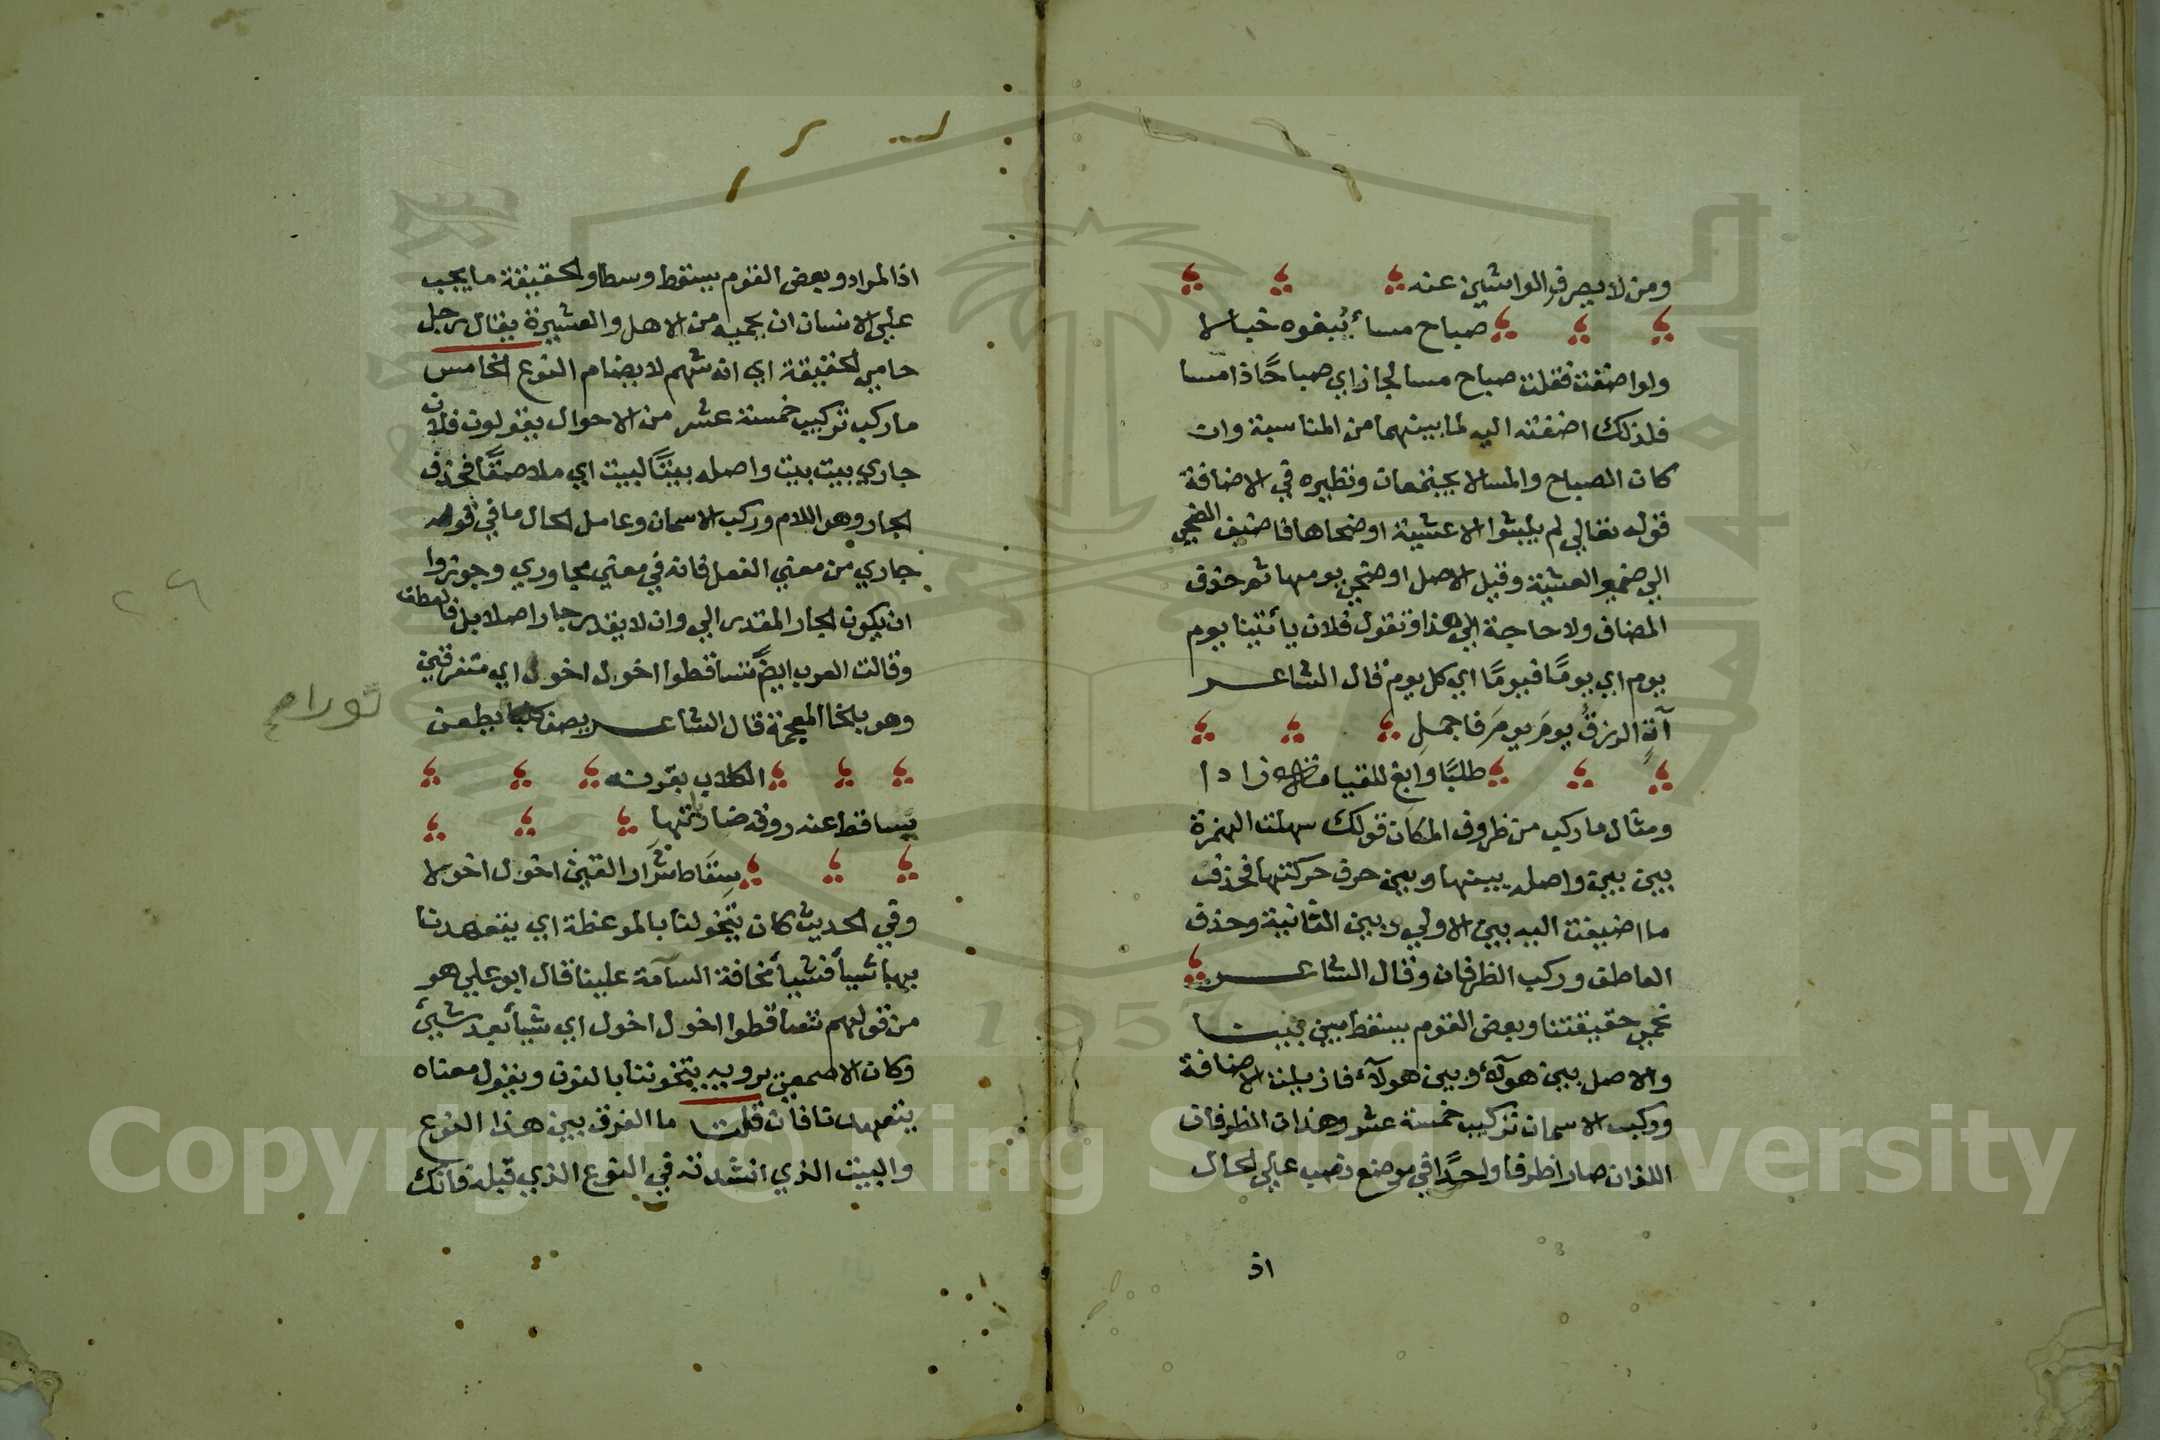 ومن لا يصرف الواشين عنه
صباح مساء يبغوه خبالا
ولو اضفت فقلت صباح مسا لجاز اي صباحًا ذا مسا
فلذلك اضفته اليه لما بينهما من المناسبة وان
كان الصباح والمسا لا يجتمعان ونظيره في الاضافة
قوله تعالي لم يلبثوا الا عشية او ضحاها فاضيف الضحي
الي ضمير العشية وقيل الاصل او ضحي يومها ثم حذف
المضاف ولا حاجة الي هذا وتقول فلان يأتينا يوم
يوم اي يومًا فيومًا اي كل يوم قال الشاعر
آتٍ الرزقُ يومَ يومَ فاجملِ
طلبًا وابغ للقيامة زادا
ومثال ما ركب من ظروف المكان قولك سهلت الهمزة
بين بين واصله بينها وبين حرف حركتها فحذف
ما اضيفت اليه بين الاولي وبين الثانية وحذف
العاطف وركب الظرفان وقال الشاعر
نحمي حقيقتنا وبعض القوم يسقط بين بينا
والاصل بين هولآء وبين هولآء فازيلت الاضافة
وركب الاسمان تركيب خمسة عشر وهذان الظرفان
اللذان صارا ظرفا واحدًا في موضع نصب علي الحال
اذ
اذ المراد وبعض القوم يسقط وسطا والحقيقة ما يجب
علي الانسان ان يحميه من الاهل والعشيرة يقال رجل
حامي الحقيقة اي انه شهم لا يضام النوع الخامس
ما ركب تركيب خمسة عشر من الاحوال يقولون فلان
جاري بيت بيت واصله بيتًا لبيت اي ملاصقًا فحذف
الجار وهو اللام وركب الاسمان وعامل الحال ما في قوله
جاري من معني الفعل فانه في معني مجاوري وجوزوا
ان يكون الجار المقدر الي وان لا يقدر جار اصلا بل فا العطف
وقالت العرب ايضًا تساقطوا اخول اخول اي متفرقين
وهو بالخا المعجمة قال الشاعر يصف كلبا يطعن
الكلاب بقرنه
يساقط عنه روقه ضارياتها
سِقَاط شَرَار القين اخول اخولا
وفي الحديث كان يتخولنا بالموعظة اي يتعهدنا
بها شيأ فشيأ مخافة السآمة علينا قال ابو علي هو
من قولهم تساقطوا اخول اخول اي شيأ بعد شيئ
وكان الاصمعي يرويه يتخوننا بالنون ويقول معناه
يتعهدنا فان قلت ما الفرق بين هذا النوع
والبيت الذي انشدته في النوع الذي قبله فانك
Copyright © King Saud University
1957